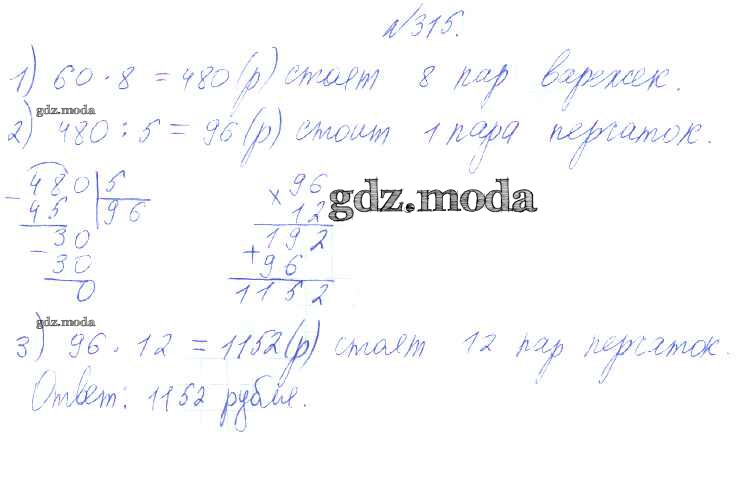 №315.
1) 60 · 8 = 480 (р) стоят 8 пар варежек.
gdz.moda
2) 480 : 5 = 96 (р) стоит 1 пара перчаток.
- 480 | 5
45 | 96
- 30
30
0
× 96
12
192
+ 96
1152
gdz.moda
gdz.moda
3) 96 · 12 = 1152 (р) стоят 12 пар перчаток.
Ответ: 1152 рубля.